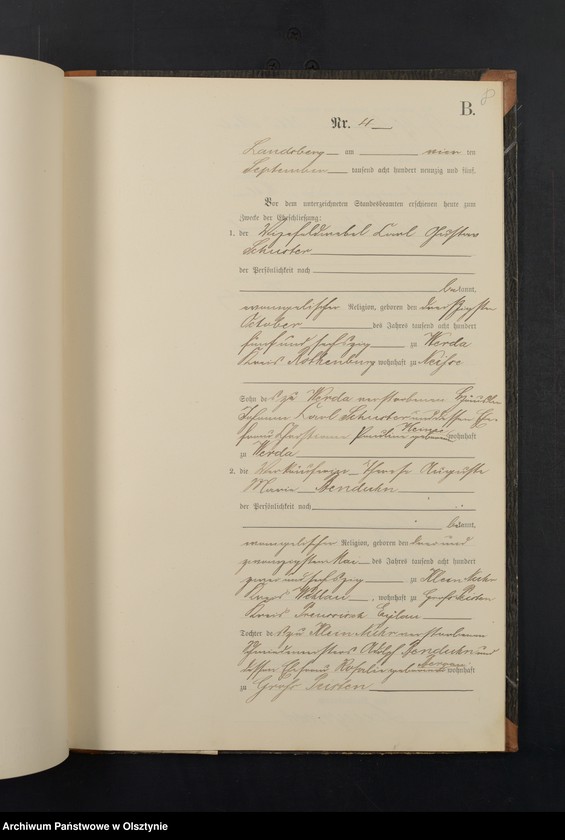 8
B.
Nr. 4
Landsberg am vier ten
September tausend acht hundert neunzig und fünf.
Vor dem unterzeichneten Standesbeamten erschienen heute zum
Zwecke der Eheschließung:
1. der Vizefeldwebel Carl Gustav
Schuster
der Persönlichkeit nach
bekannt,
evangelischer Religion, geboren den dreißigsten
October des Jahres tausend acht hundert
fünf und sechszig zu Werda
Kreis Rothenburg wohnhaft zu Neisse
Sohn des zu Werda verstorbenen Häusler
Johann Carl Schuster und dessen Ehe-
frau Pauline geborene Hempel wohnhaft
zu Werda
2. die Therese Auguste
Marie Bendukn
der Persönlichkeit nach
bekannt,
evangelischer Religion, geboren den drei und
zwanzigsten Mai des Jahres tausend acht hundert
zwei und sechszig zu Klein Nuhr
Kreis Wehlau, wohnhaft zu Groß Peisten
Kreis Preussisch Eylau
Tochter des zu Klein Nuhr verstorbenen
Schmiedemeisters Adolf Bendukn und
dessen Ehefrau Rosalie geborene wohnhaft
zu Groß Peisten
Archiwum Państwowe w Olsztynie